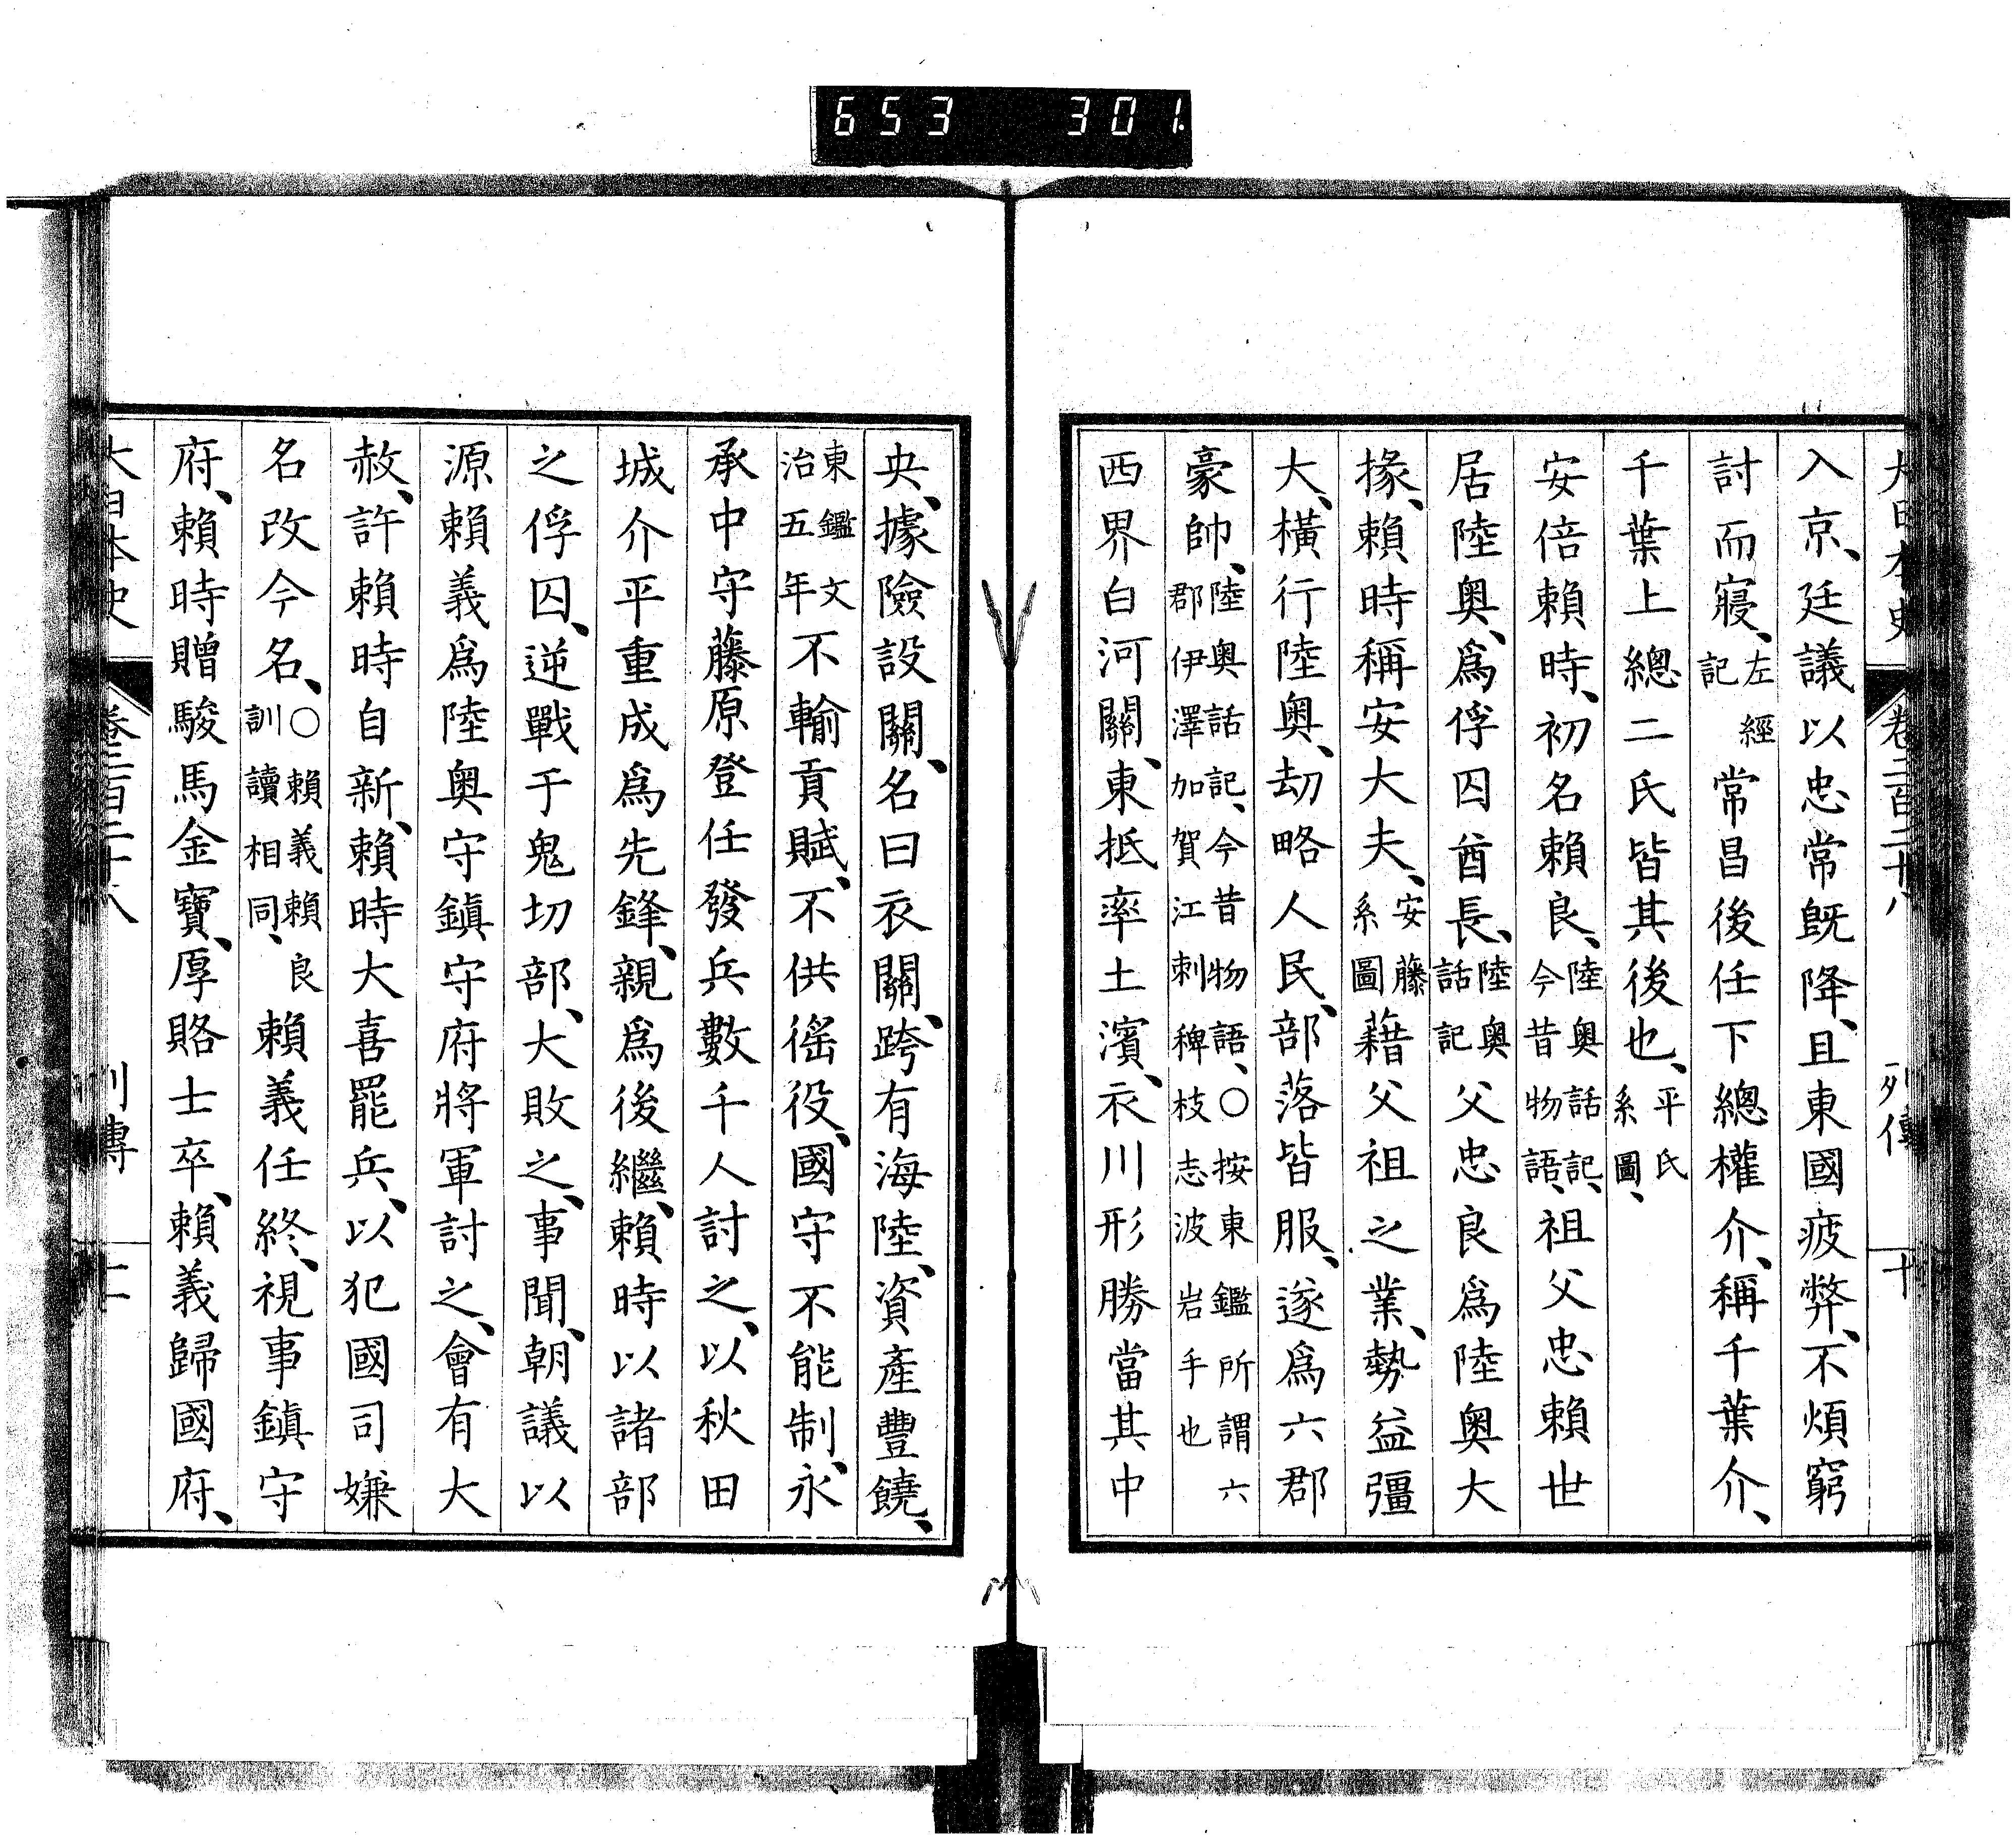 653 301
大日本史 卷二百二十八 列傳 十
入京、廷議以忠常既降、且東國疲弊、不煩窮
討而寢、左經記常昌後任下總權介、稱千葉介、
千葉上總二氏皆其後也、平氏系圖、
安倍賴時、初名賴良、陸奧話記、今昔物語、祖父忠賴世
居陸奧、爲俘囚酋長、陸奧話記父忠良爲陸奧大
掾、賴時稱安大夫、安藤系圖藉父祖之業、勢益彊
大、橫行陸奧、劫略人民、部落皆服、遂爲六郡
豪帥、陸奧話記、今昔物語、○按東鑑所謂六郡伊澤加賀江刺稗枝志波岩手也
西界白河關、東抵率土濱、衣川形勝當其中
央、據險設關、名曰衣關、跨有海陸、資產豐饒、
東鑑文治五年不輸貢賦、不供徭役、國守不能制、永
承中守藤原登任發兵數千人討之、以秋田
城介平重成爲先鋒、親爲後繼、賴時以諸部
之俘囚、逆戰于鬼切部、大敗之、事聞、朝議以
源賴義爲陸奧守鎭守府將軍討之、會有大
赦、許賴時自新、賴時大喜罷兵、以犯國司嫌
名改今名、○賴義賴良訓讀相同、賴義任終、視事鎭守
府、賴時贈駿馬金寶、厚賂士卒、賴義歸國府、
大日本史 卷二百二十八 列傳